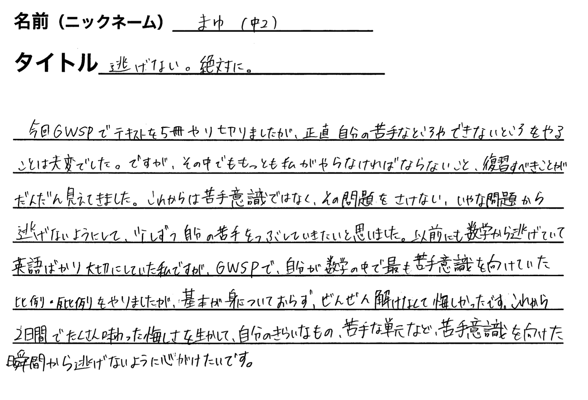 名前（ニックネーム） まゆ（中2）
タイトル 逃げない。絶対に。
今回GWSPでテキストを5冊やり切りましたが、正直自分の苦手なところやできないところをやる
ことは大変でした。ですが、その中でももっとも私がやらなければならないこと、復習すべきことが
だんだん見えてきました。これからは苦手意識ではなく、その問題をさけない、いやな問題から
逃げないようにして、少しずつ自分の苦手をつぶしていきたいと思いました。以前にも数学から逃げていて
英語ばかり大切にしていた私ですが、GWSPで、自分が数学の中で最も苦手意識を向けていた
比例・反比例をやりましたが、基本が身についておらず、ぜんぜん解けなくて悔しかったです。これから
2日間でたくさん味わった悔しさを生かして、自分のきらいなもの、苦手な単元など、苦手意識を向けた
瞬間から逃げないように心がけたいです。